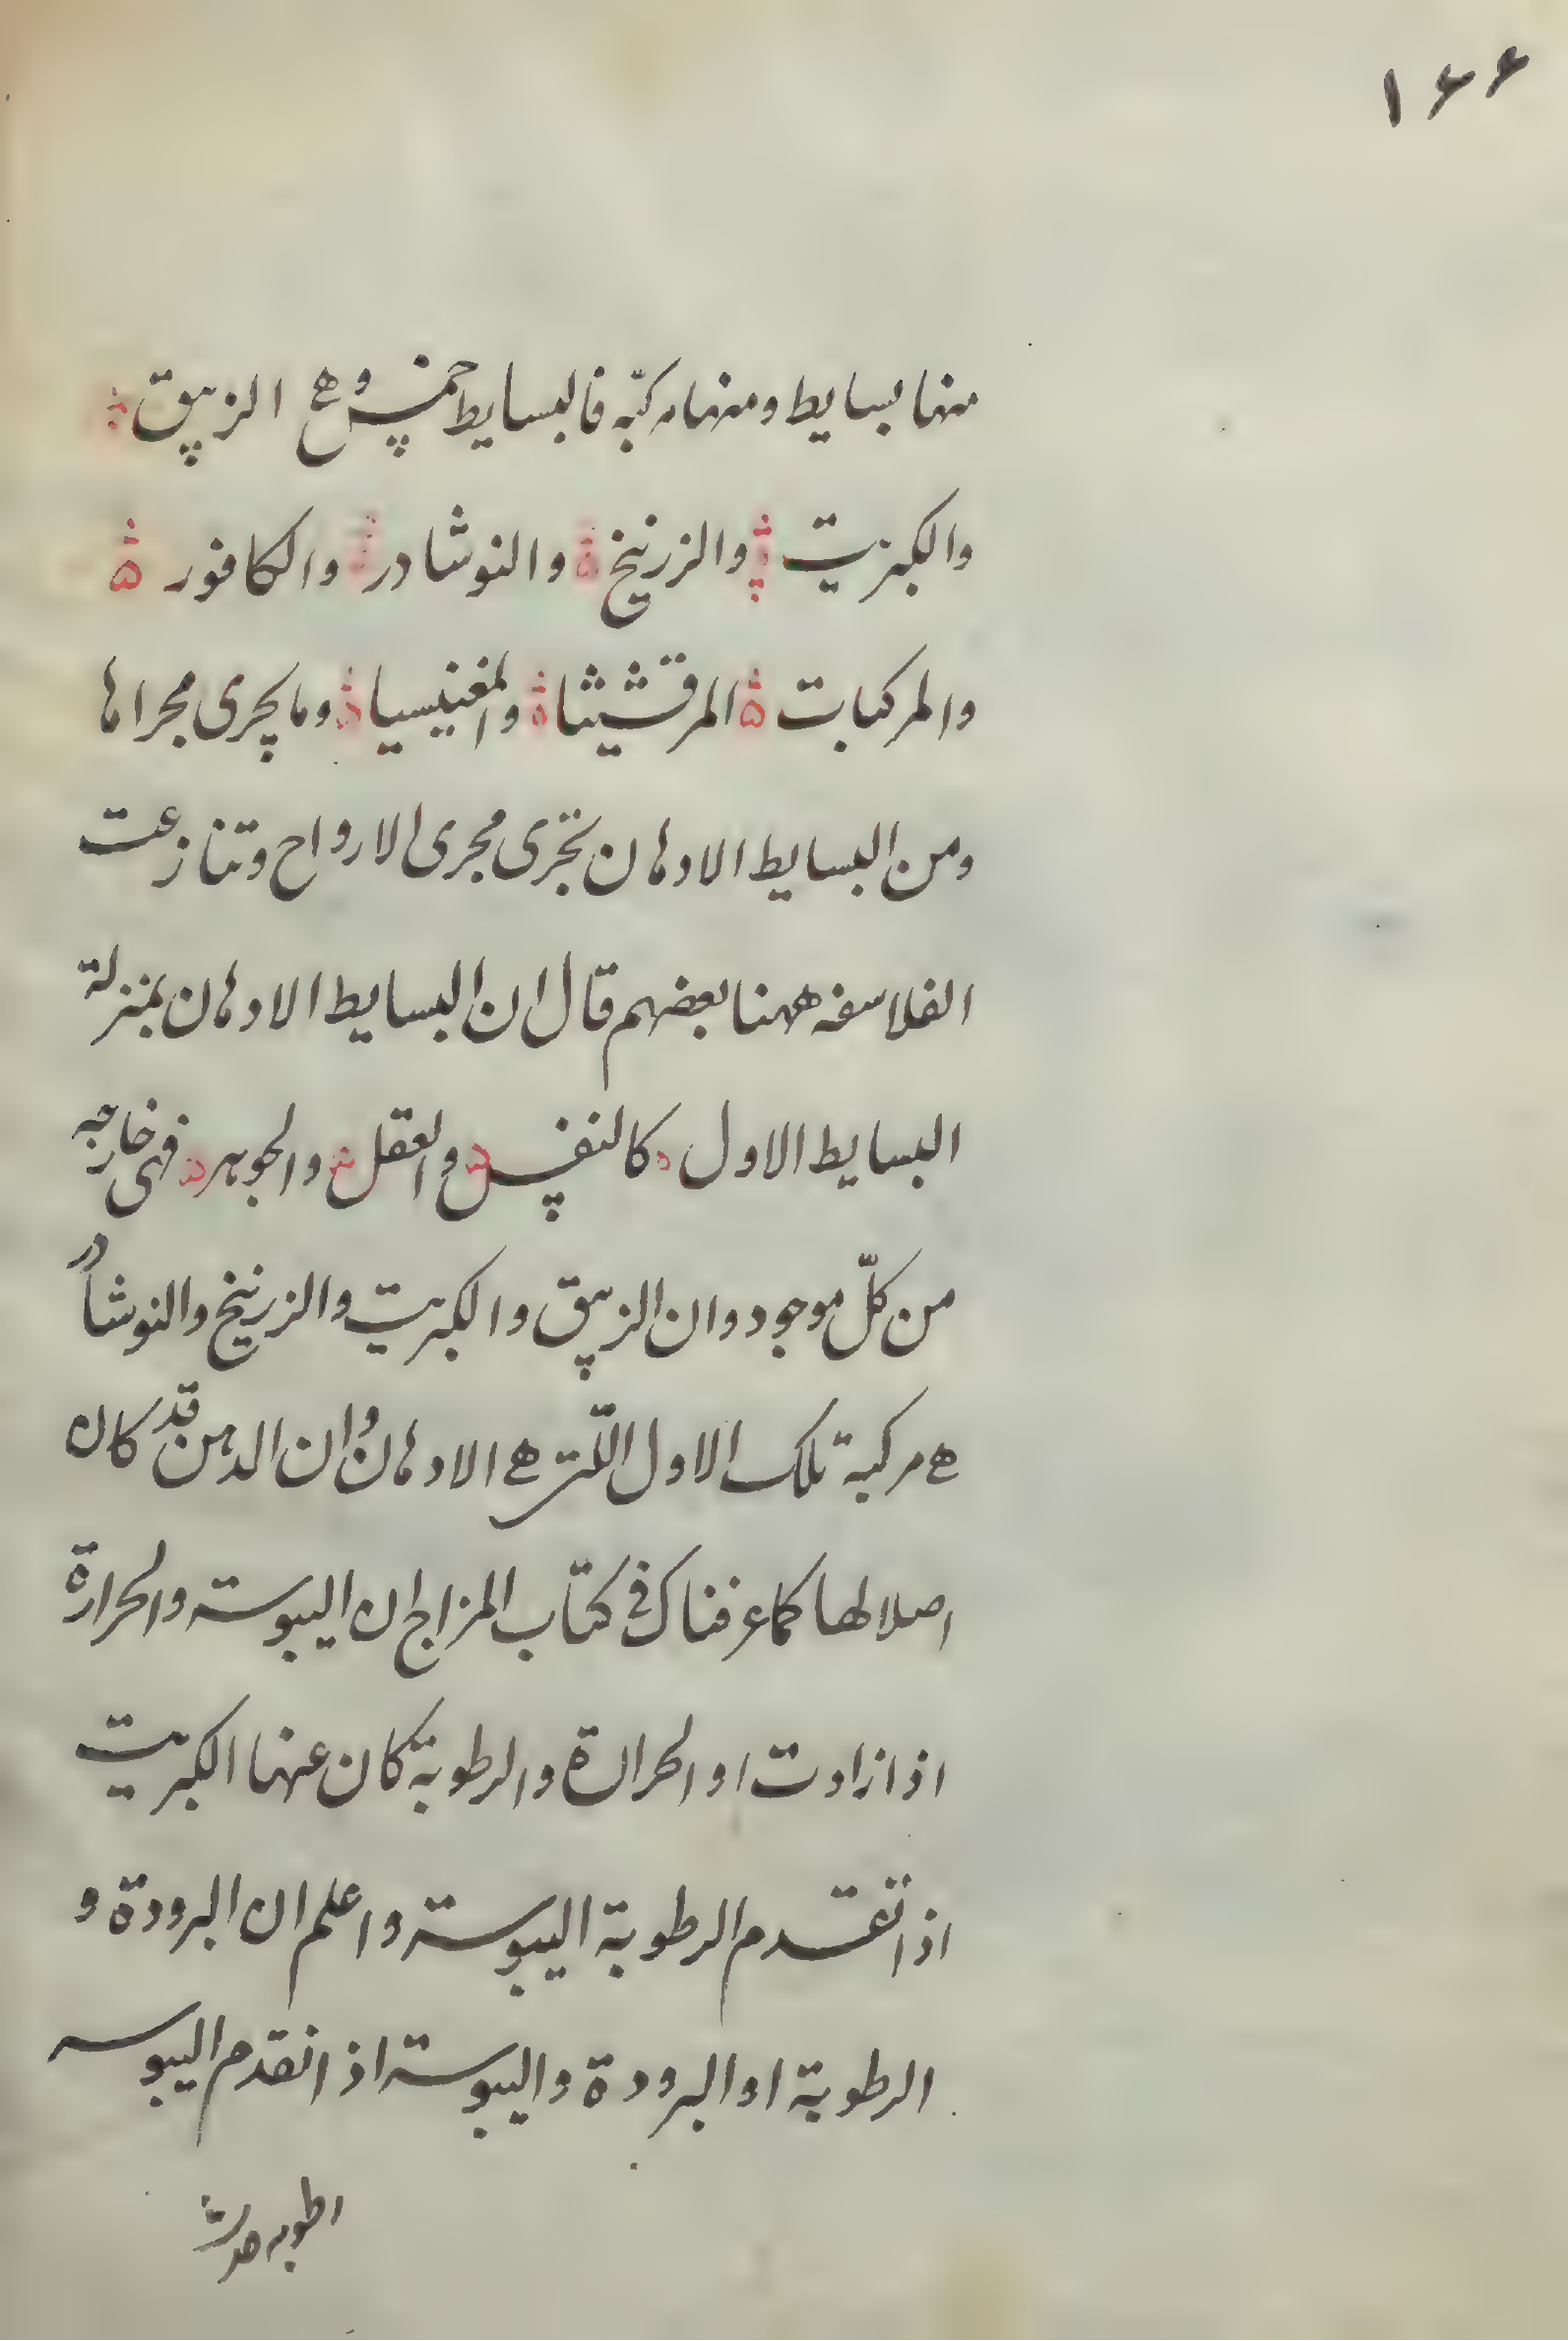 ۱۶۶
منها بسايط ومنها مركبّه فالبسايط خمس وهے الزيبق
والكبريت والزرنيخ والنوشادر والكافور
والمركبات المرقشيثا والمغنيسيا وما يجرى مجراها
ومن البسايط الادهان تجرى مجرى الارواح وتنازعت
الفلاسفه ههنا بعضهم قال ان البسايط الادهان بمنزلة
البسايط الاول كالنفس والعقل والجوهر فهى خارجه
من كلّ موجود وان الزيبق والكبريت والزرنيخ والنوشادر
هے مركبة تلك الاول اللّتى هے الادهان وان الدهن قد كان
اصلا لها كما عرفناك فى كتاب المزاج ان اليبوسة والحرارة
اذا زادت او الحرارة والرطوبة كان عنها الكبريت
اذا تقدم الرطوبة اليبوسة واعلم ان البرودة و
الرطوبة او البرودة واليبوسة اذا تقدم اليبوسه